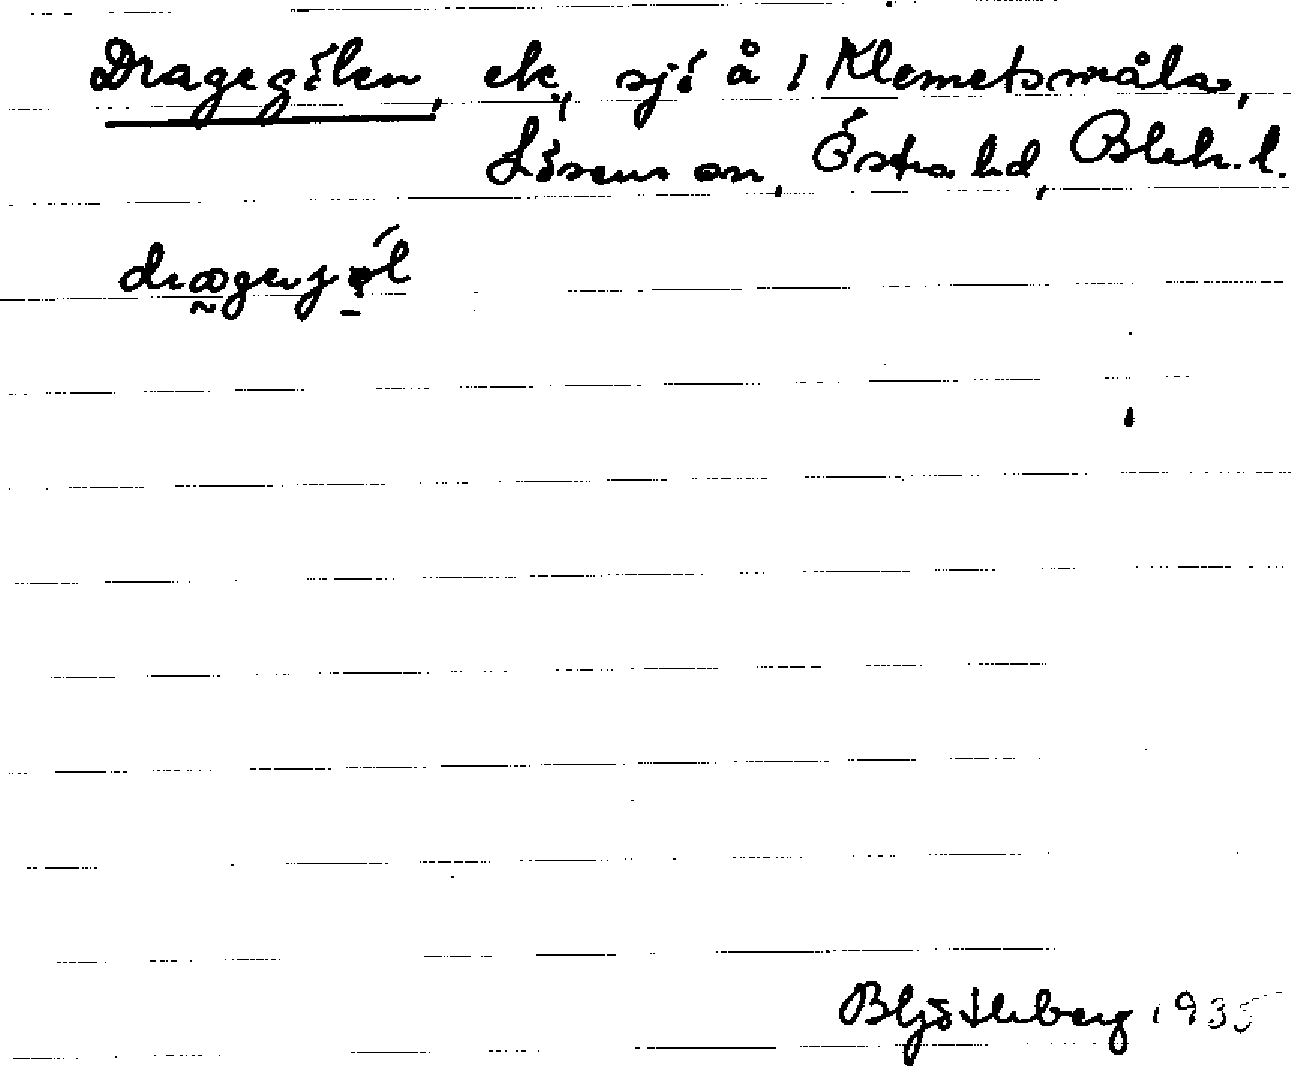 Dragegölen, ek, sjö å 1 Klemetsmåla,
Lösens sn, Östra hd, Blek. l.
B Ljöstberg 1935